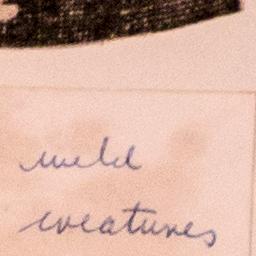 wild
creatures